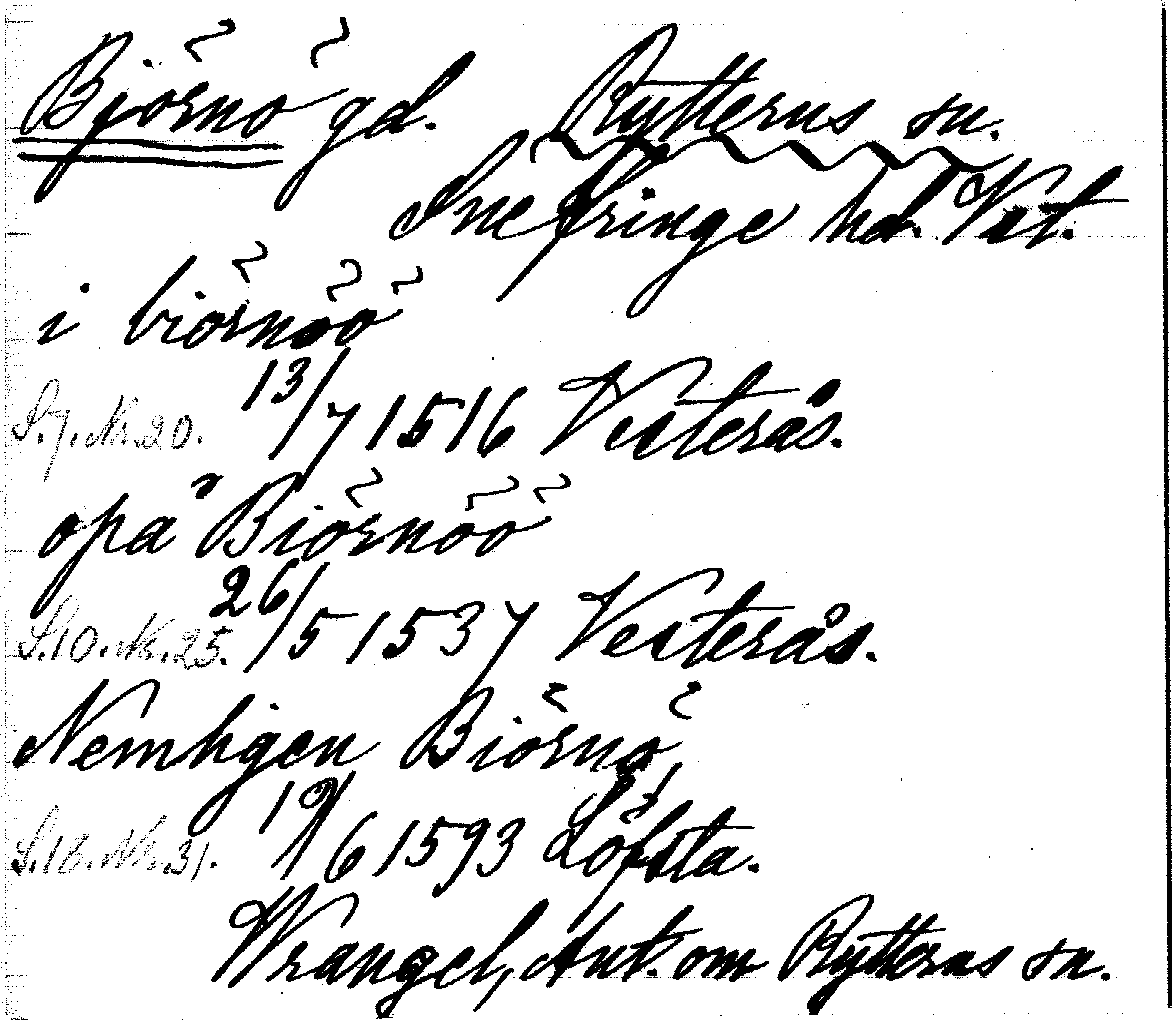 Björnö gd. Rytterns sn.
Snefringe hd. Vstm.
i biörnöö
S. 7. Nr. 20. 13/7 1516 Vesterås.
opå Biörnöö
S. 10. Nr. 25. 26/5 1537 Vesterås.
Nemligen Biörnö
S. 18. Nr. 31. 19/6 1593 Löfsta.
Wrangel, Ant. om Rytterns sn.